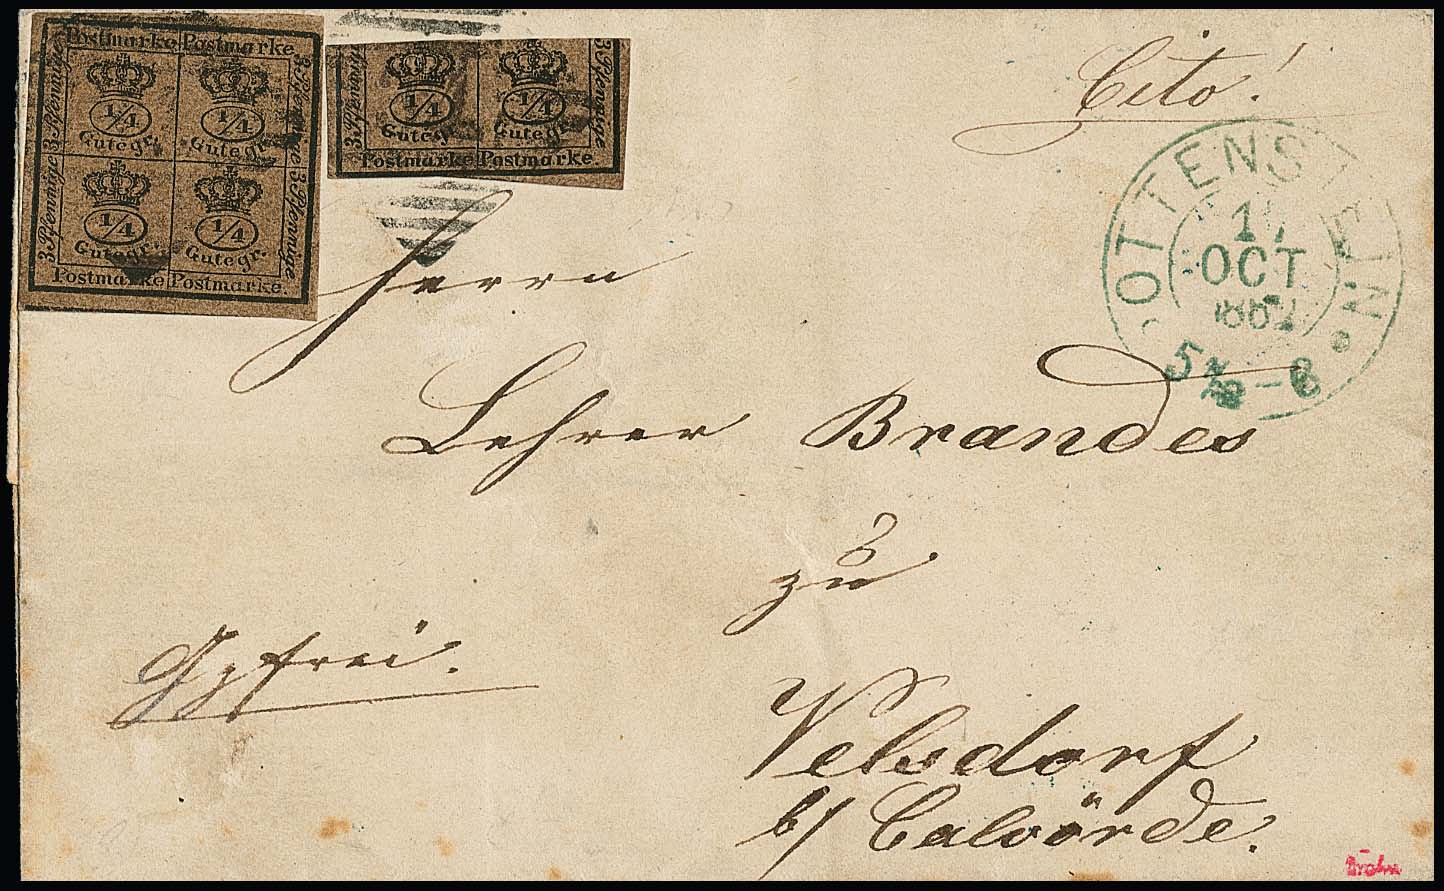 Postmarke Postmarke
3 Pfennige
3 Pfennige
1/4
Gutegr.
1/4
Gutegr.
3 Pfennige
3 Pfennige
1/4
Gutegr.
1/4
Gutegr.
Postmarke Postmarke.
3 Pfennige
1/4
Gutegr.
1/4
Gutegr.
Postmarke Postmarke.
Cito!
OTTENSTEIN
OCT
5 - 6
Herrn
Lehrer Brandes
zu
Velsdorf
b/ Calvörde.
frei.